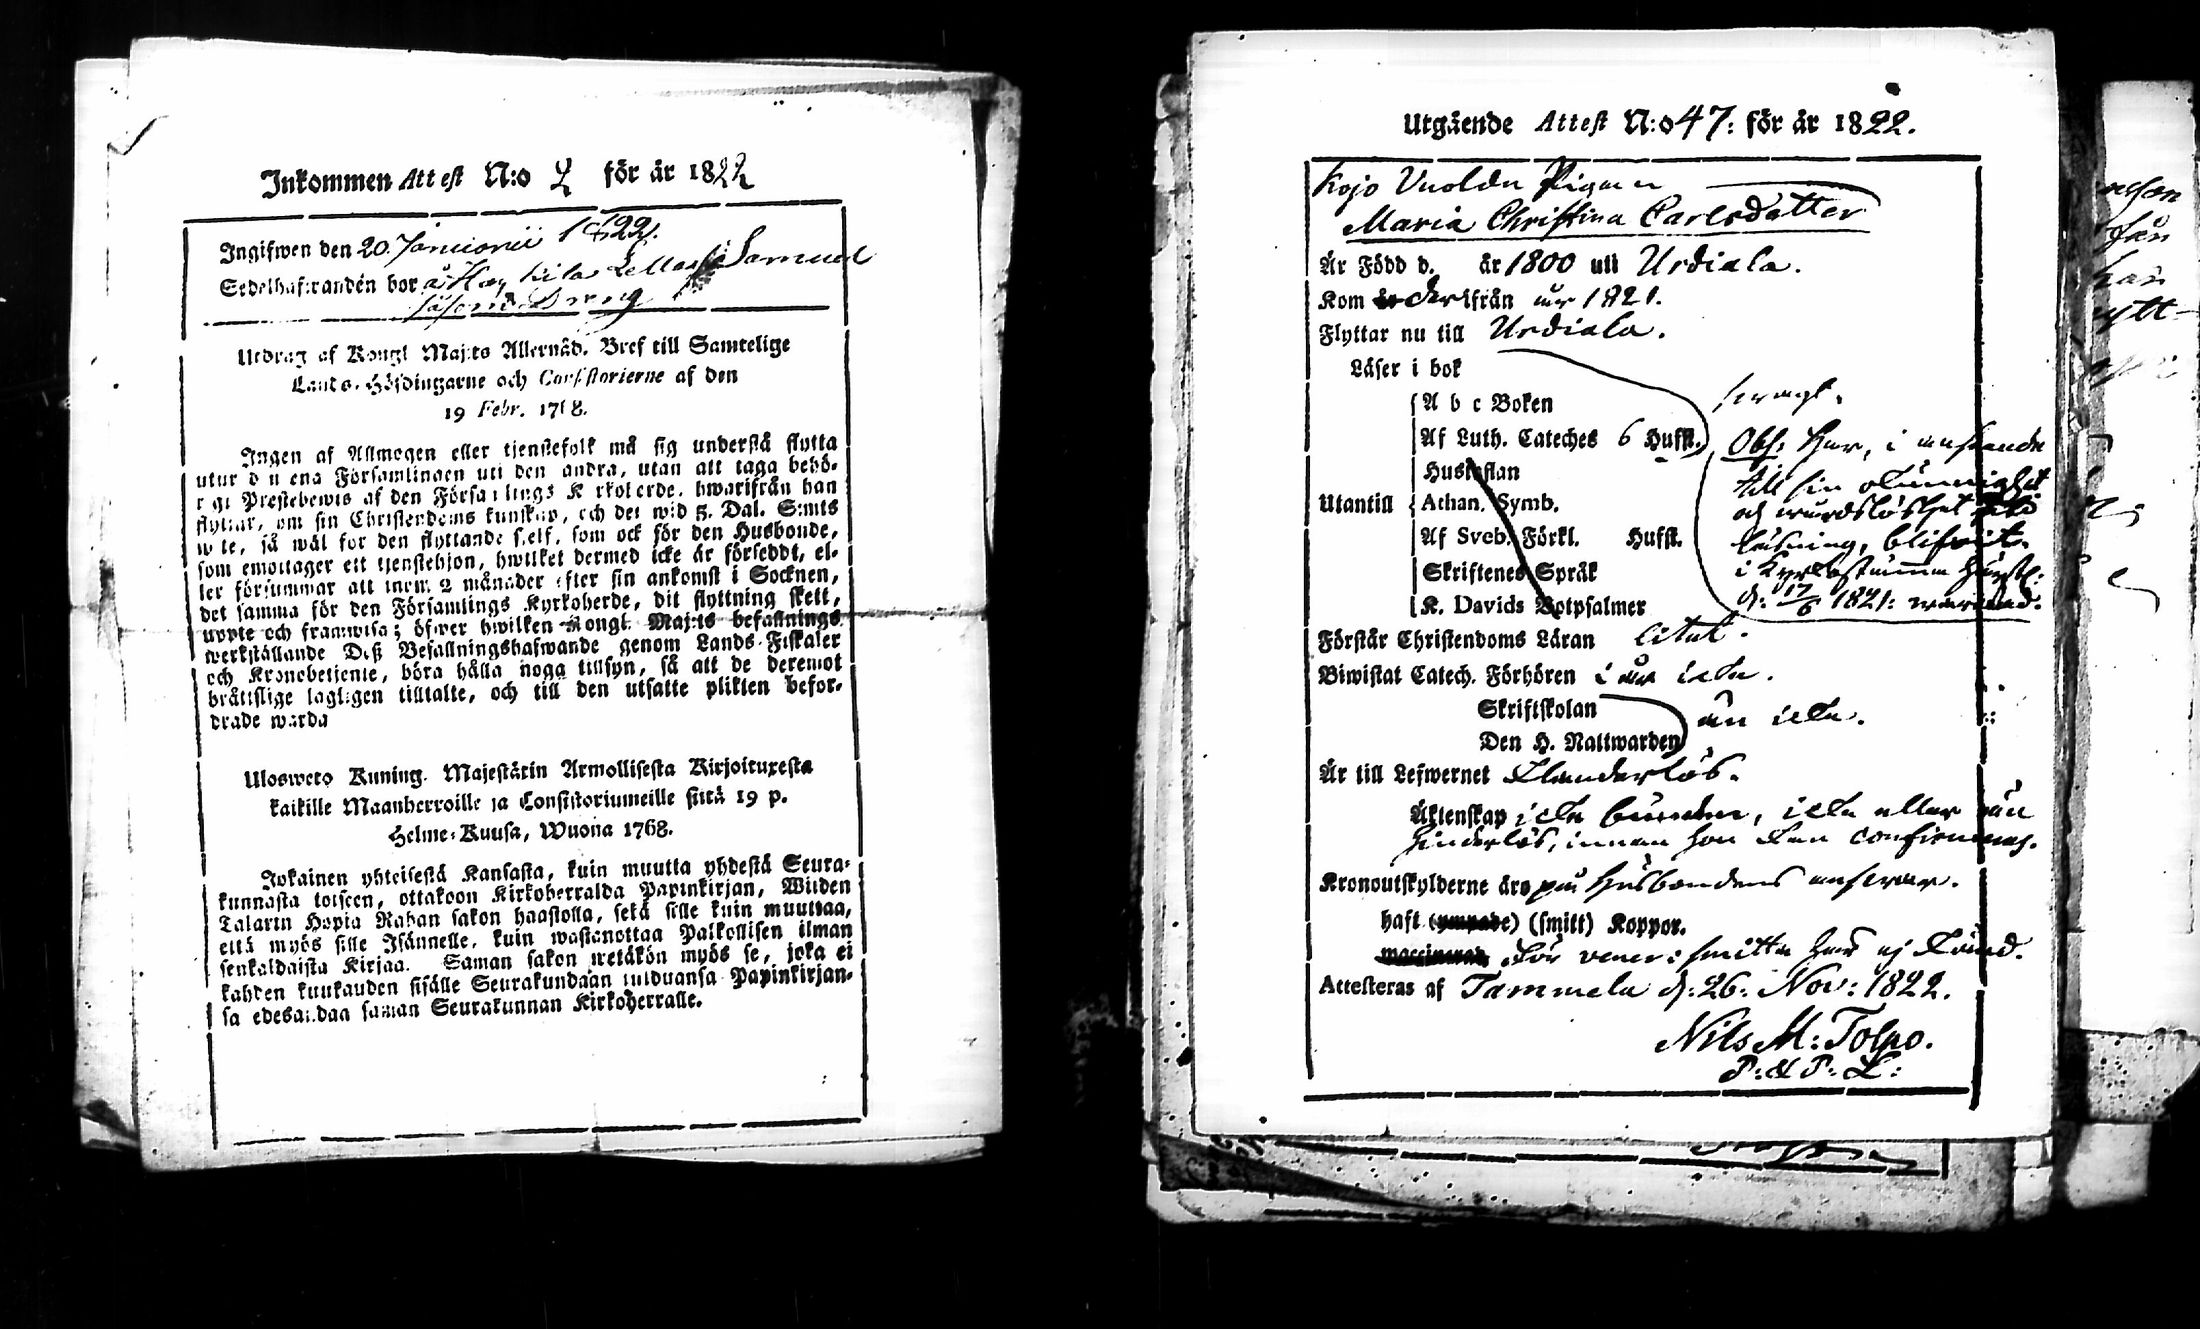 Inkommen Attest N:o 2 för år 1822
Ingifwen den 20. Januarii 1822.
Sedelhafwanden bor å Samuel
såsom Dreng
Utdrag af Kongl Maj:ts Allernåd. Bref till Samtelige
Lands-Höfdingarne och Consistorierne af den
19 Febr. 1768.
Ingen af Allmogen eller tjenstefolk må sig understå flytta
utur den ena Församlingen uti den andra, utan att taga behö-
rigt Prestebewis af den Församlings Kyrkoherde, hwarifrån han
flyttar, om sin Christendoms kunskap, och det wid 5. Dal. S:mts
wite, så wäl for den flyttande sjelf, som ock för den Husbonde,
som emottager ett tjenstehjon, hwilket dermed icke är försedt, el-
ler försummar att inom 2 månader efter sin ankomst i Socknen,
det samma för den Församlings Kyrkoherde, dit flyttning skett,
uppte och framwisa; öfwer hwilken Kongl. Maj:ts befallnings
werkställande Deß Befallningshafwande genom Lands-Fiskaler
och Kronobetjente, böra hålla noga tillsyn, så att de deremot
bråttslige lagligen tilltalte, och till den utsatte plikten befor-
drade warda
Ulosweto Kuning. Majestätin Armollisesta Kirjoituxesta
kaikille Maanherroille ja Consistoriumeille siitä 19 p.
Helme-Kuusa, Wuona 1768.
Jokainen yhteisestä Kansasta, kuin muutta yhdestä Seura-
kunnasta toiseen, ottakoon Kirkoherralda Papinkirjan, Wiiden
Talarin Hopia Rahan sakon haastolla, sekä sille kuin muuttaa,
että myös sille Isännelle, kuin wastanottaa Palkollisen ilman
senkaldaista Kirjaa. Saman sakon wetäkön myös se, joka ei
kahden kuukauden sisälle Seurakundaan tulduansa Papinkirjan-
sa edesandaa saman Seurakunnan Kirkoherralle.
Utgående Attest N:o 47: för år 1822.
Kojo Pigan
Maria Christina Carlsdotter
Är Född d. år 1800 uti Urdiala.
Kom derifrån år 1821.
Flyttar nu till Urdiala.
Läser i bok swagt.
A b c Boken
Af Luth. Cateches 6 Hufst.
Hustaflan
Utantill Athan. Symb.
Af Sveb. Förkl. Hufst.
Skriftenes Språk
K. Davids Botpsalmer
Obs. har, i anseende
till sin okunnighet
och wårdslöshet
läsning, blifwit
i Kyrkostämma
d: 17/6 1821: warnad.
Förstår Christendoms Läran litet.
Biwistat Catech. Förhören i år icke.
Skriftskolan
Den H. Nattwarden än icke.
Är till Lefwernet klanderlös.
Äktenskap icke bunden, icke eller än
hinderlös, innan hon kan confirmeras.
Kronoutskylderne äro på Husbondens answar.
haft (ympade) (smitt) Koppor.
vaccinerad för vener: smitta har ej känd.
Attesteras af Tammela d: 26: Nov: 1822.
Nils M: Tolpo.
P: & P: L: